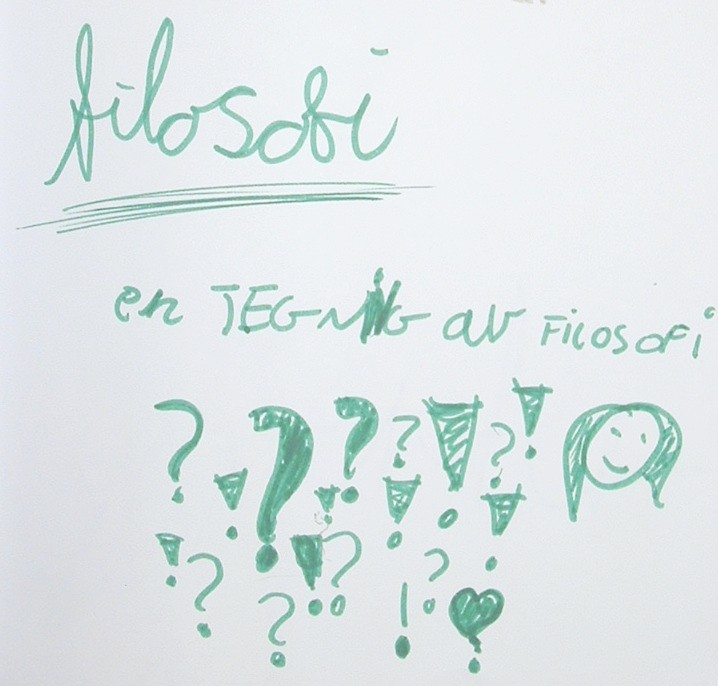 filosofi
en TEGNING av FilosoFi
? ? ? ? ! ? !
! ! ! !
! ? ! ? ?
? !